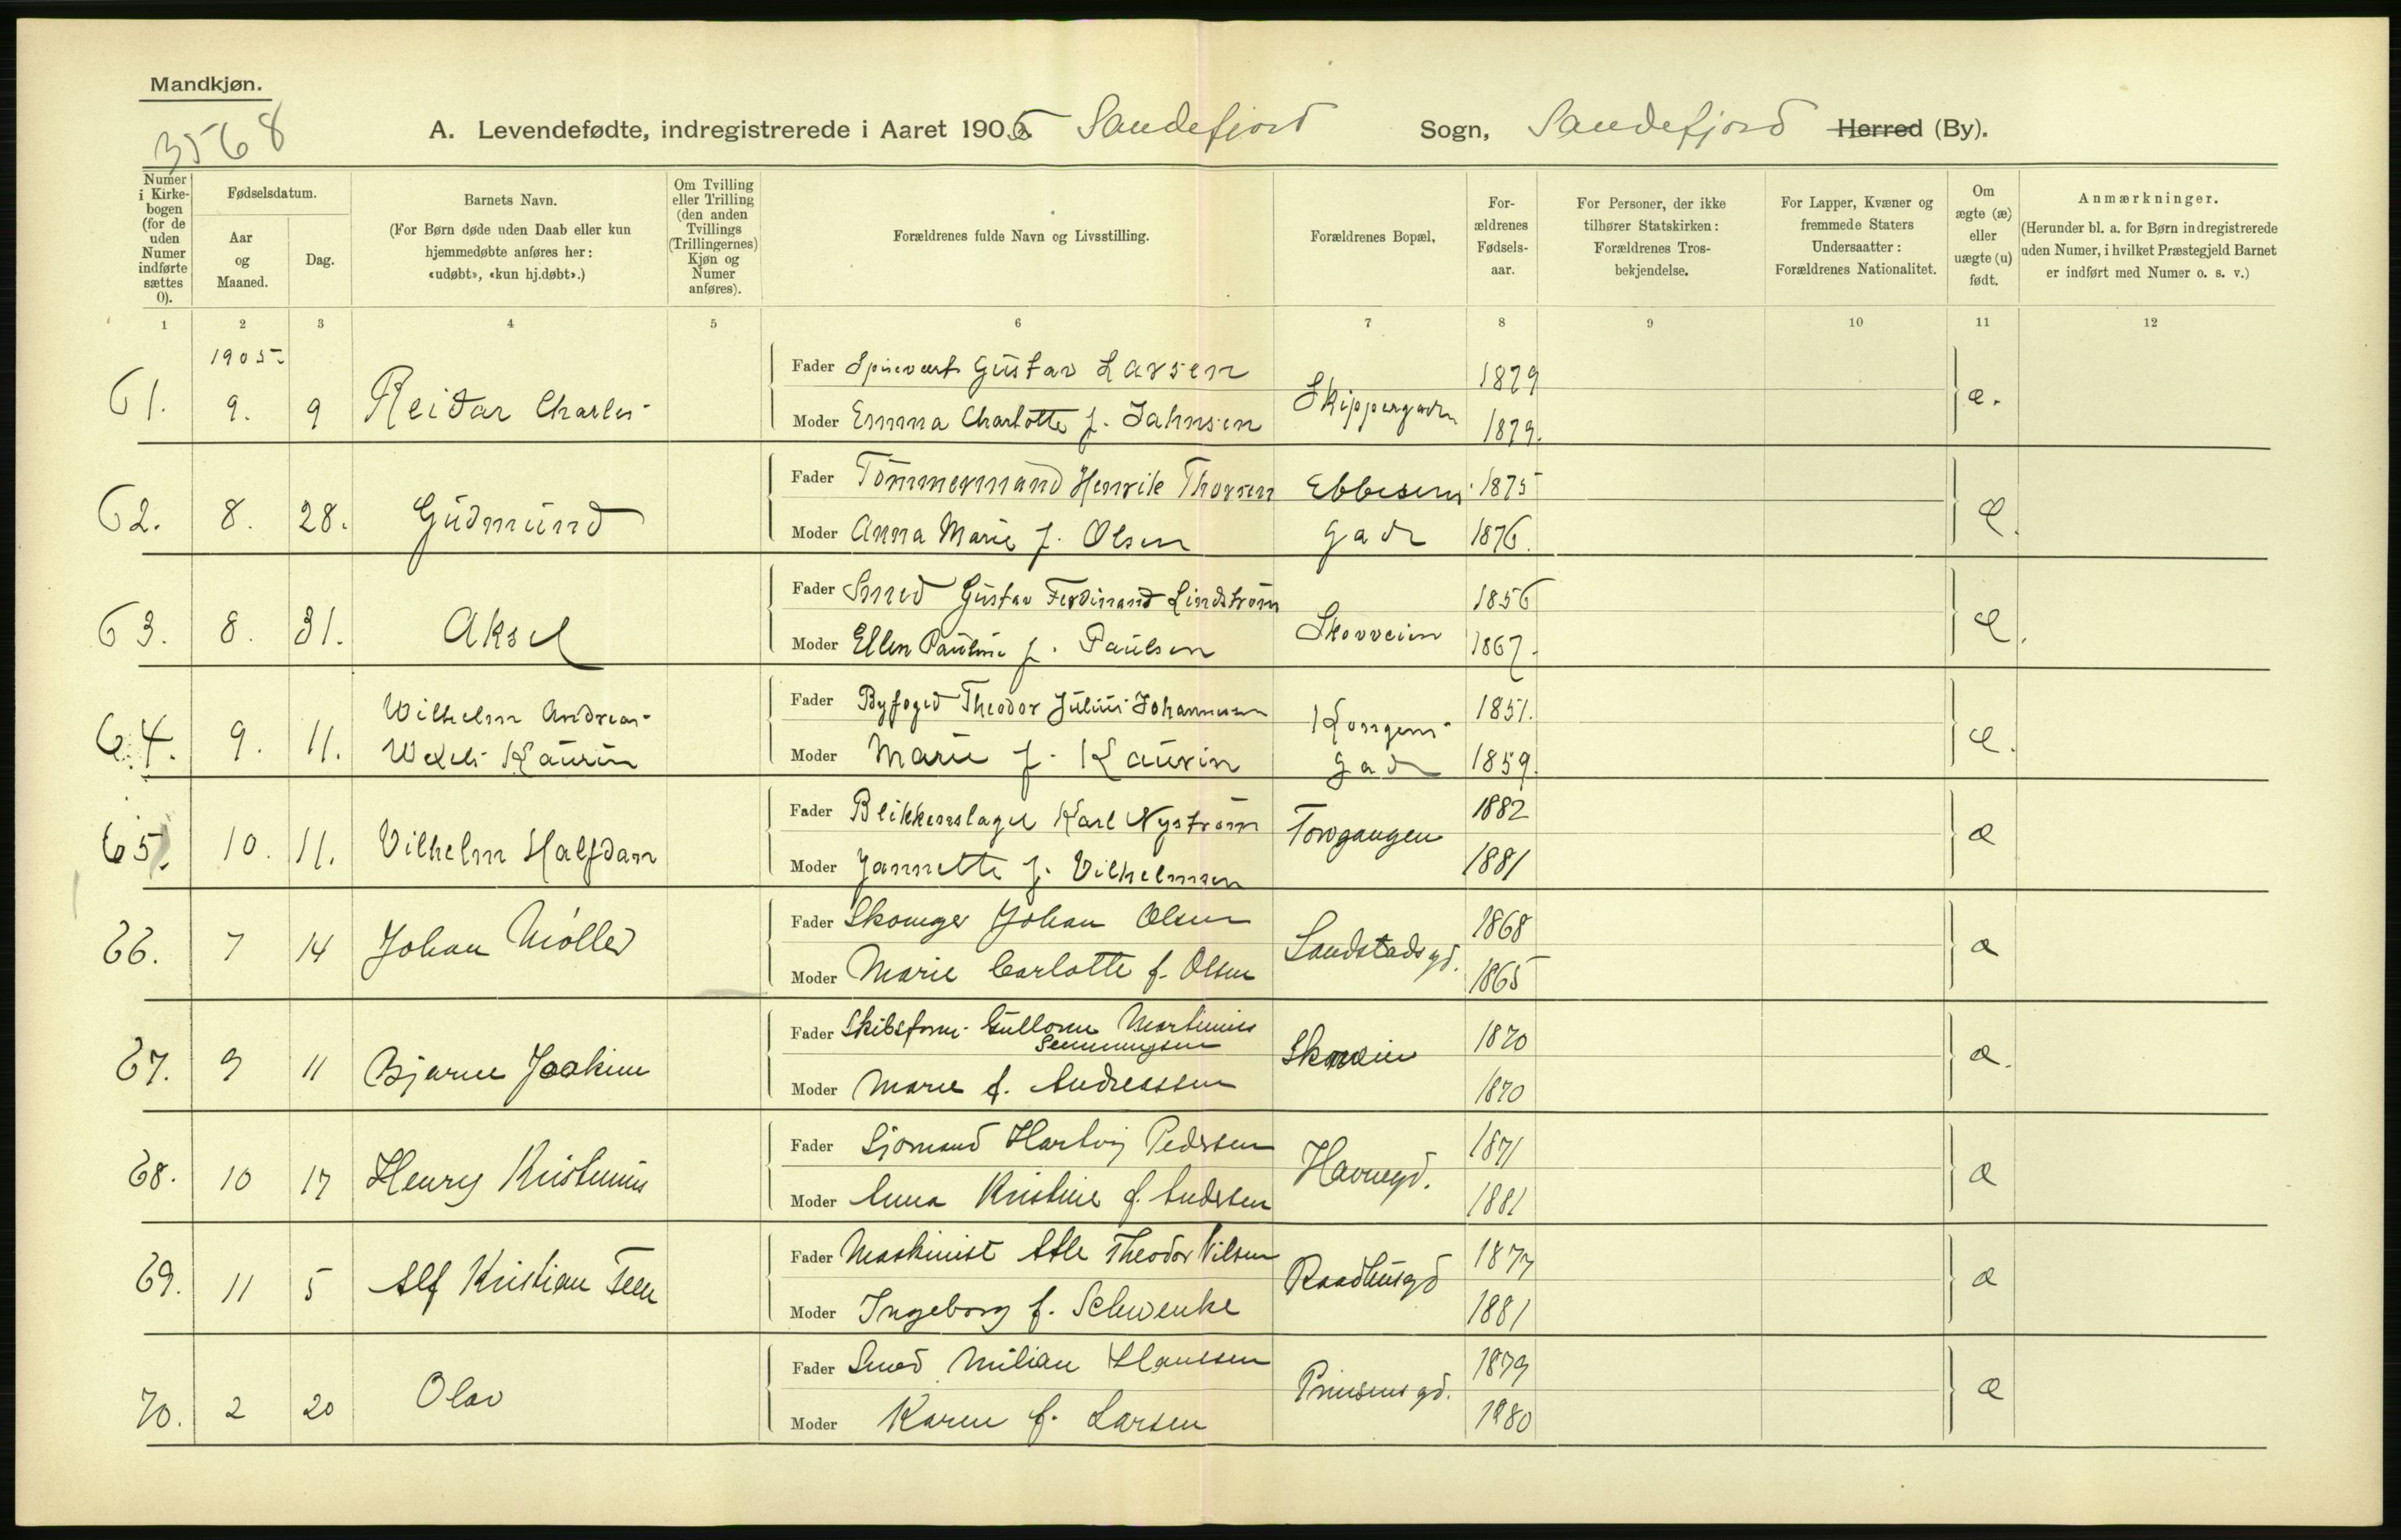 Mandkjøn.
3568
A. Levendefødte, indregistrerede i Aaret 1905. Sandefjord Sogn, Sandefjord Herred (By).
Numer i Kirkebogen (for de uden Numer indførte sættes 0).
Fødselsdatum.
Aar og Maaned.
Dag.
Barnets Navn.
(For Børn døde uden Daab eller kun hjemmedøbte anføres her: «udøbt», «kun hj.døbt».)
Om Tvilling eller Trilling (den anden Tvillings (Trillingernes) Kjøn og Numer anføres).
Forældrenes fulde Navn og Livsstilling.
Forældrenes Bopæl,
Forældrenes Fødselsaar.
For Personer, der ikke tilhører Statskirken: Forældrenes Trosbekjendelse.
For Lapper, Kvæner og fremmede Staters Undersaatter: Forældrenes Nationalitet.
Om ægte (æ) eller uægte (u) født.
Anmærkninger.
(Herunder bl. a. for Børn indregistrerede uden Numer, i hvilket Præstegjeld Barnet er indført med Numer o. s. v.)
1 2 3 4 5 6 7 8 9 10 11 12
1905
61. 9. 9 Reidar Charles Fader Spisevært Gustav Larsen Skippergaden 1879 æ.
Moder Emma Charlotte f. Jahnsen 1879.
62. 8. 28. Gudmund Fader Tømmermand Henrik Thorsen Ebbesens 1875 æ.
Moder Anna Marie f. Olsen gade 1876.
63. 8. 31. Aksel Fader Smed Gustav Ferdinand Lindstrøm Skovveien 1856 æ.
Moder Ellen Pauline f. Paulsen 1867.
64. 9. 11. Wilhelm Andreas Fader Byfoged Theodor Julius Johannessen Kongens 1851. æ.
Wexels Kaurin Moder Marie f. Kaurin gade 1859.
65. 10. 11. Vilhelm Halfdan Fader Blikkenslager Karl Nystrøm Torvgangen 1882 æ
Moder Jannette f. Vilhelmsen 1881
66. 7 14 Johan Møller Fader Skomger Johan Olsen Landstadsgd. 1868 æ
Moder Marie Carlotte f. Olsen 1865
67. 9 11 Bjarne Joakim Fader Skibstøm. Gullorm Martinius Semmingsen Skovvein 1870 æ.
Moder Marie f. Andreassen 1870
68. 10 17 Henry Kristinius Fader Sjømand Hartvig Pedersen Havnegd. 1871 æ
Moder Anna Kristine f. Andersen 1881
69. 11 5 Alf Kristian Feen Fader Maskinist Atle Theodor Nilsen Raadhusgd 1877 æ
Moder Ingeborg f. Schwenke 1881
70. 2 20 Olav Fader Smed Milian Hanssen Prinsensgd. 1879 æ
Moder Karen f. Larsen 1880